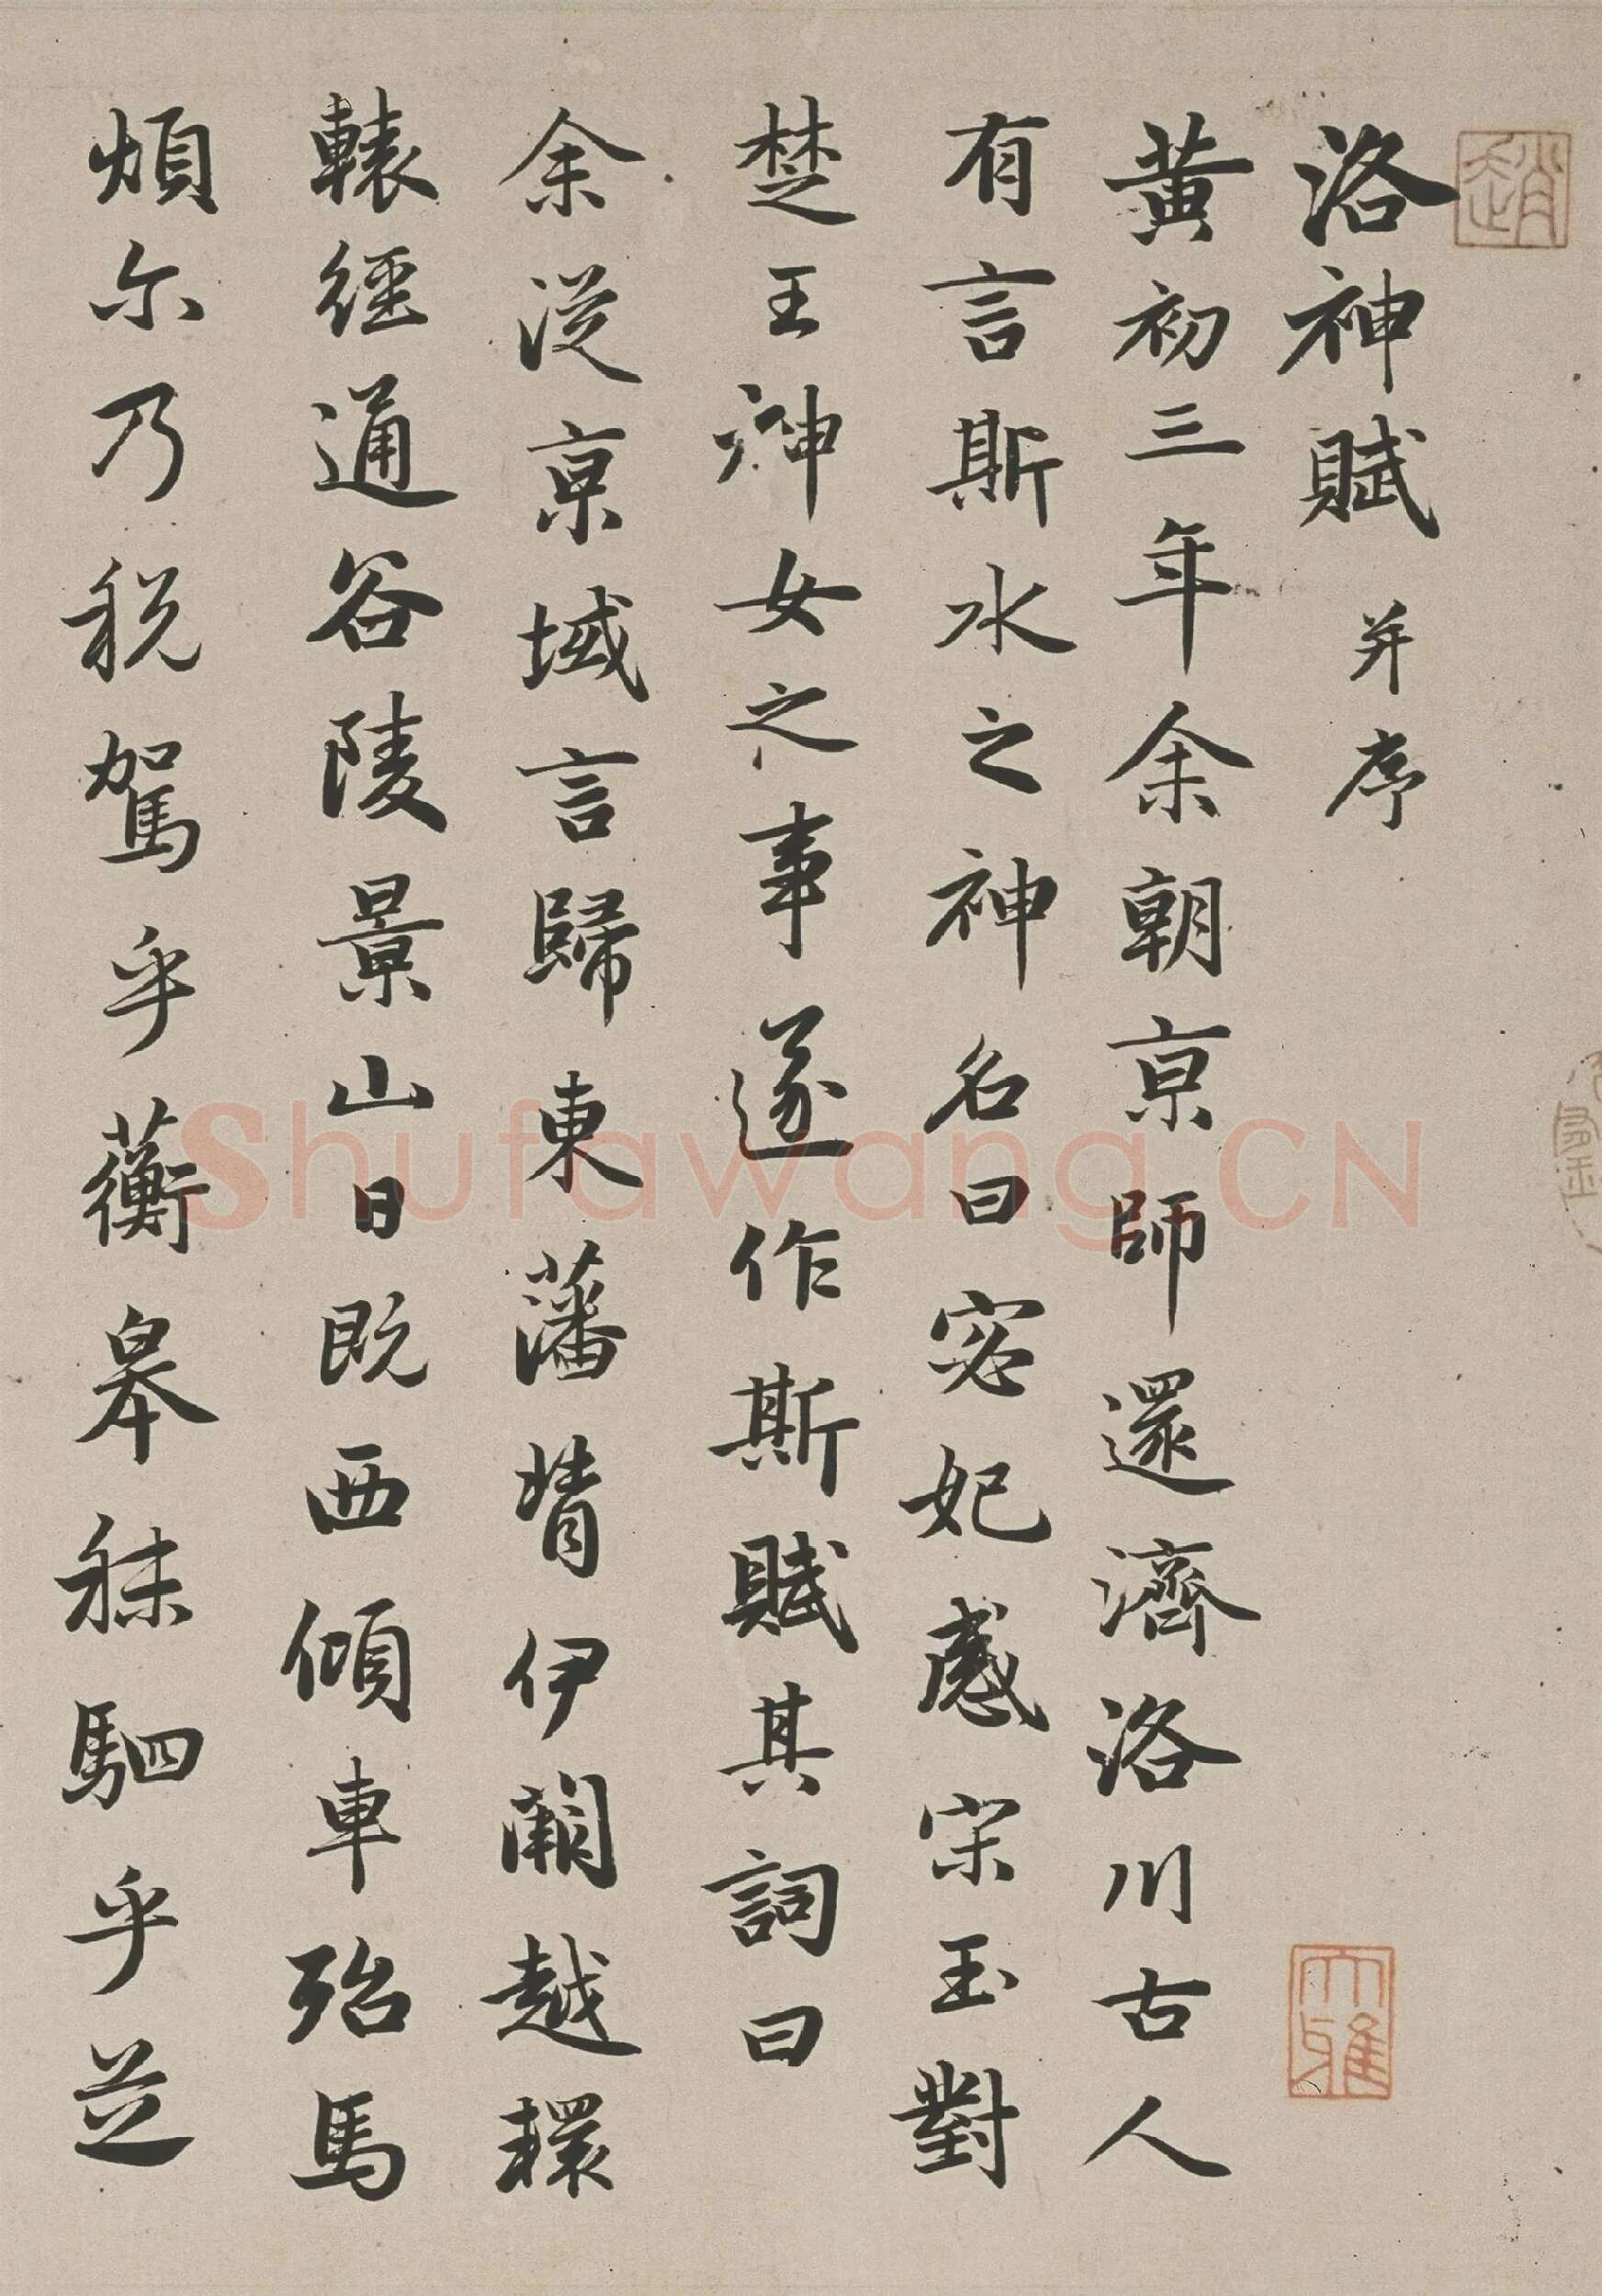 洛神賦 并序
黃初三年余朝京師還濟洛川古人
有言斯水之神名曰宓妃感宋玉對
楚王神女之事遂作斯賦其詞曰
余從京域言歸東藩背伊闕越轘
轅經通谷陵景山日既西傾車殆馬
煩尔乃稅駕乎蘅皋秣駟乎芝
趙
大雅
Shufawang.CN